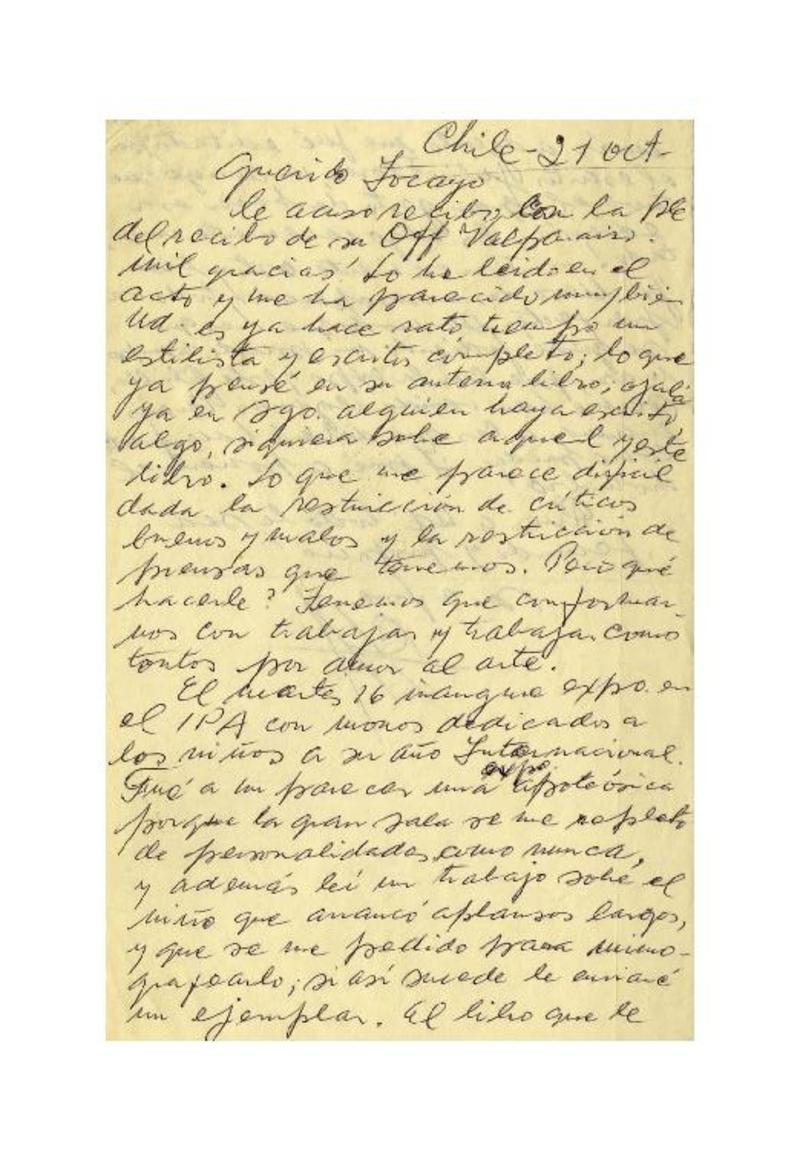 Chile - 21 oct-
Querido Tocayo
le acuso recibo, con la
del recibo de su Off Valparaiso.
Mil gracias! Lo he leido en el
acto y me ha parecido muy bien
Ud. es ya hace rato tiempo un
estilista y escritor completo; lo que
ya pensé en su anterior libro; ojalá
ya en Sgo. alguien haya escrito
algo, siquiera sobre aquel y este
libro. Lo que me parece dificil
dada la restricción de críticos
buenos y malos y la restricción de
prensas que tenemos. Pero qué
hacerle? Tenemos que conformar-
nos con trabajar y trabajar como
tontos por amor al arte.
El martes 16 inauguré expo. en
el IPA con monos dedicados a
los niños a su año Internacional.
Fué a mi parecer una expo. apoteósica
porque la gran sala se me repletó
de personalidades como nunca,
y además leí un trabajo sobre el
niño que arrancó aplausos largos,
y que se me pedido para mimo-
grafearlo; si así sucede le enviaré
un ejemplar. El libro que le